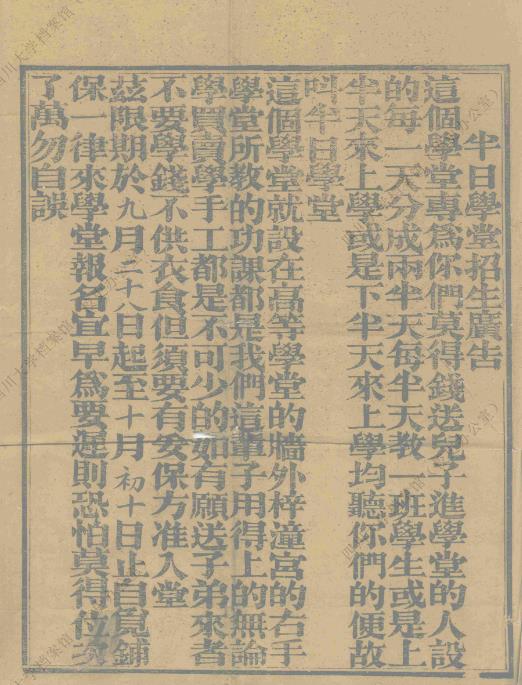 半日學堂招生廣告
這個學堂專爲你們莫得錢送兒子進學堂的人設
的每一天分成兩半天每半天教一班學生或是上
半天來上學或是下半天來上學均聽你們的便故
叫半日學堂
這個學堂就設在高等學堂的牆外梓潼宮的右手
學堂所教的功課都是我們這輩子用得上的無論
學買賣學手工都是不可少的如有願送子弟來者
不要學錢不供衣食但須要有妥保方准入堂
茲限期於九月二十八日起至十月初十日止自覓鋪
保一律來學堂報名宜早爲要遲則恐怕莫得位次
了萬勿自誤
四川大学档案馆（办公室）